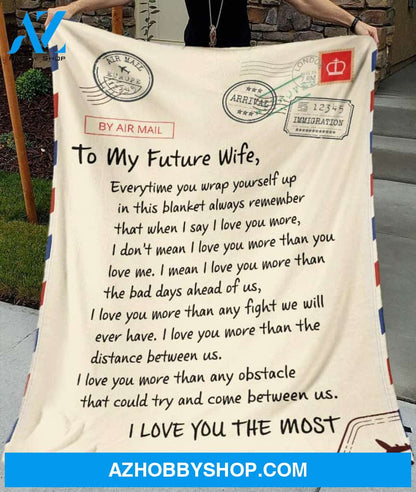 AZ
SHOP
AIR MAIL
ARRIVAL
LONDON
12345
IMMIGRATION
BY AIR MAIL
To My Future Wife,
Everytime you wrap yourself up
in this blanket always remember
that when I say I love you more,
I don't mean I love you more than you
love me. I mean I love you more than
the bad days ahead of us,
I love you more than any fight we will
ever have. I love you more than the
distance between us.
I love you more than any obstacle
that could try and come between us.
I LOVE YOU THE MOST
AZHOBBYSHOP.COM